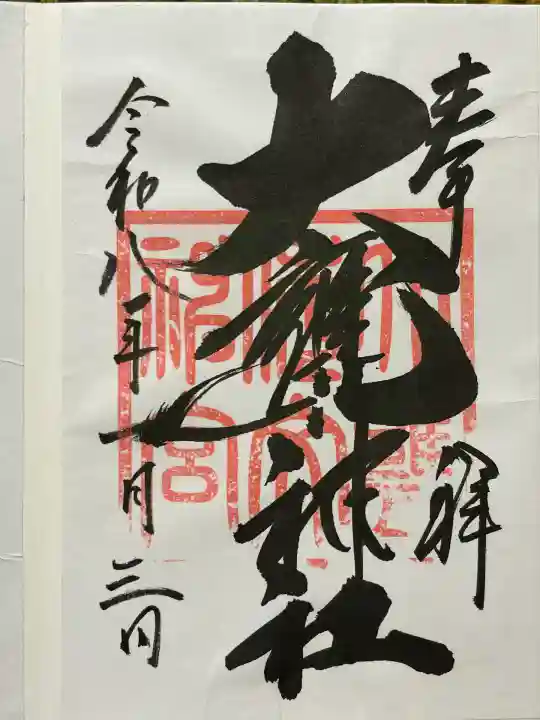 奉拝
大甕神社
令和八年一月三日